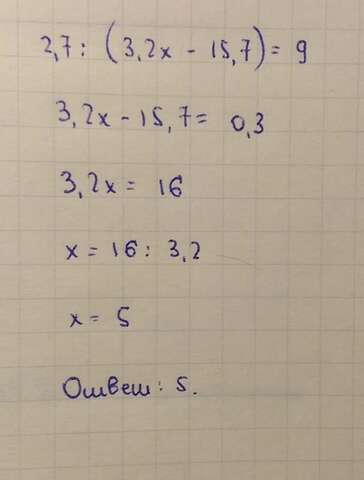 2,7 : (3,2x - 15,7) = 9
3,2x - 15,7 = 0,3
3,2x = 16
x = 16 : 3,2
x = 5
Ответ : 5.